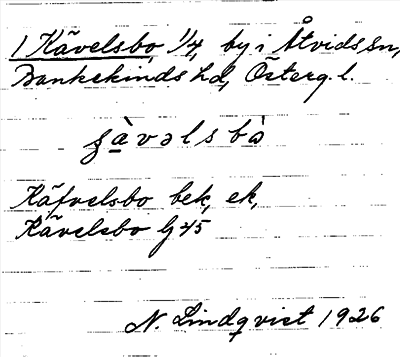 1 Kävelsbo 1/4, by i Åtvids sn,
Bankekinds hd, Österg. l.
ʂàvəlsbò
Käfvelsbo bek, ek,
Kävelsbo G 45
N. Lindqvist 1926